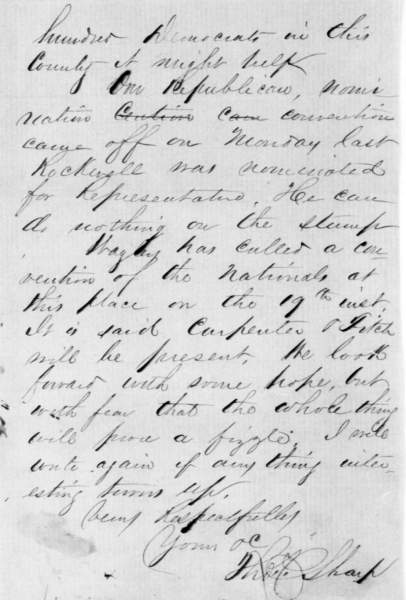 hundred Democrats in this
County it might help
Our Republican, nomi
nation Caution cam convention
came off on Monday last
Rockwell was nominated
for Representative. He can
do nothing on the stump
has called a con
vention of the Nationals at
this place on the 19th inst.
It is said Carpenter & Fitch
will be present. We look
forward with some hope, but
with fear that the whole thing
will prove a fizzle. I will
write again if any thing inter-
esting turns up.
Very Respectfully
Yours &c
Sharp